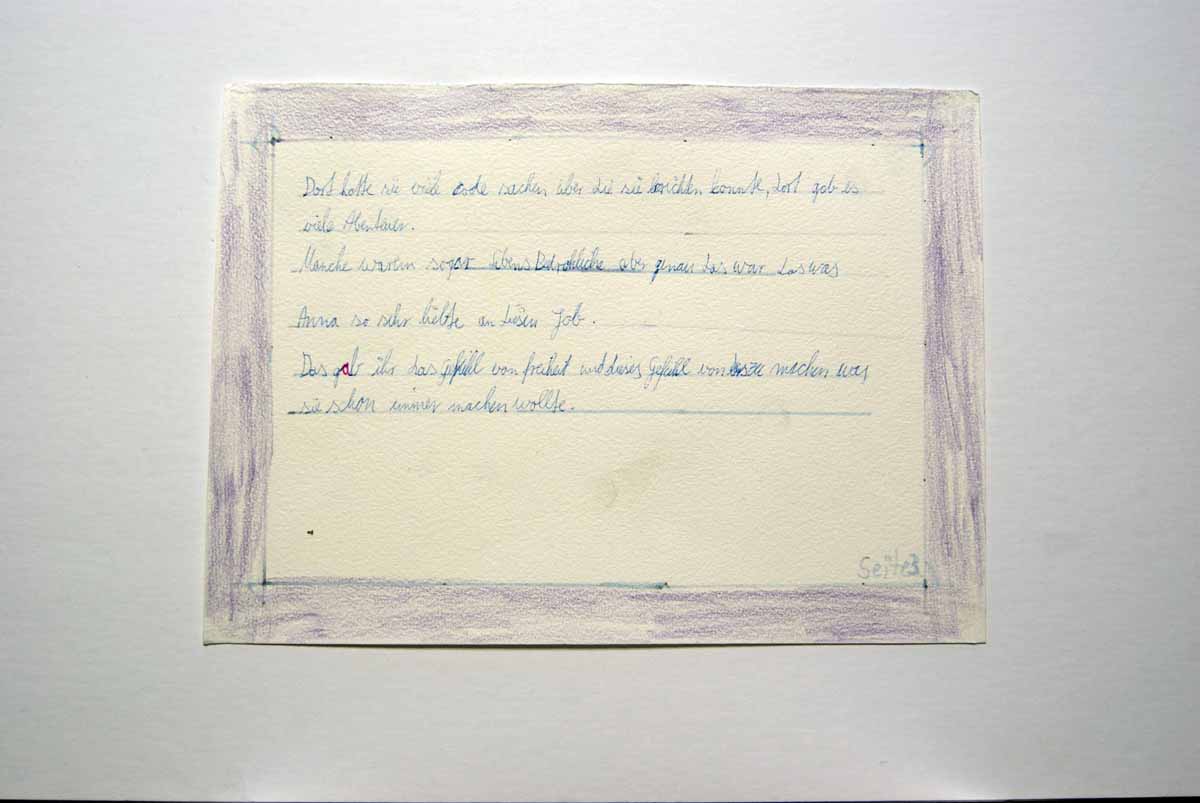 Dort hatte sie viele sachen aber die sie berichten konnte, dort gab es
viele Abenteuer.
Manche waren sogar lebens Bedrohliche aber genau das war das was
Anna so sehr liebte an diesen Job.
Das gab ihr das gefühl von freiheit und dieses Gefühl von zu machen was
sie schon immer machen wollte.
Seite3